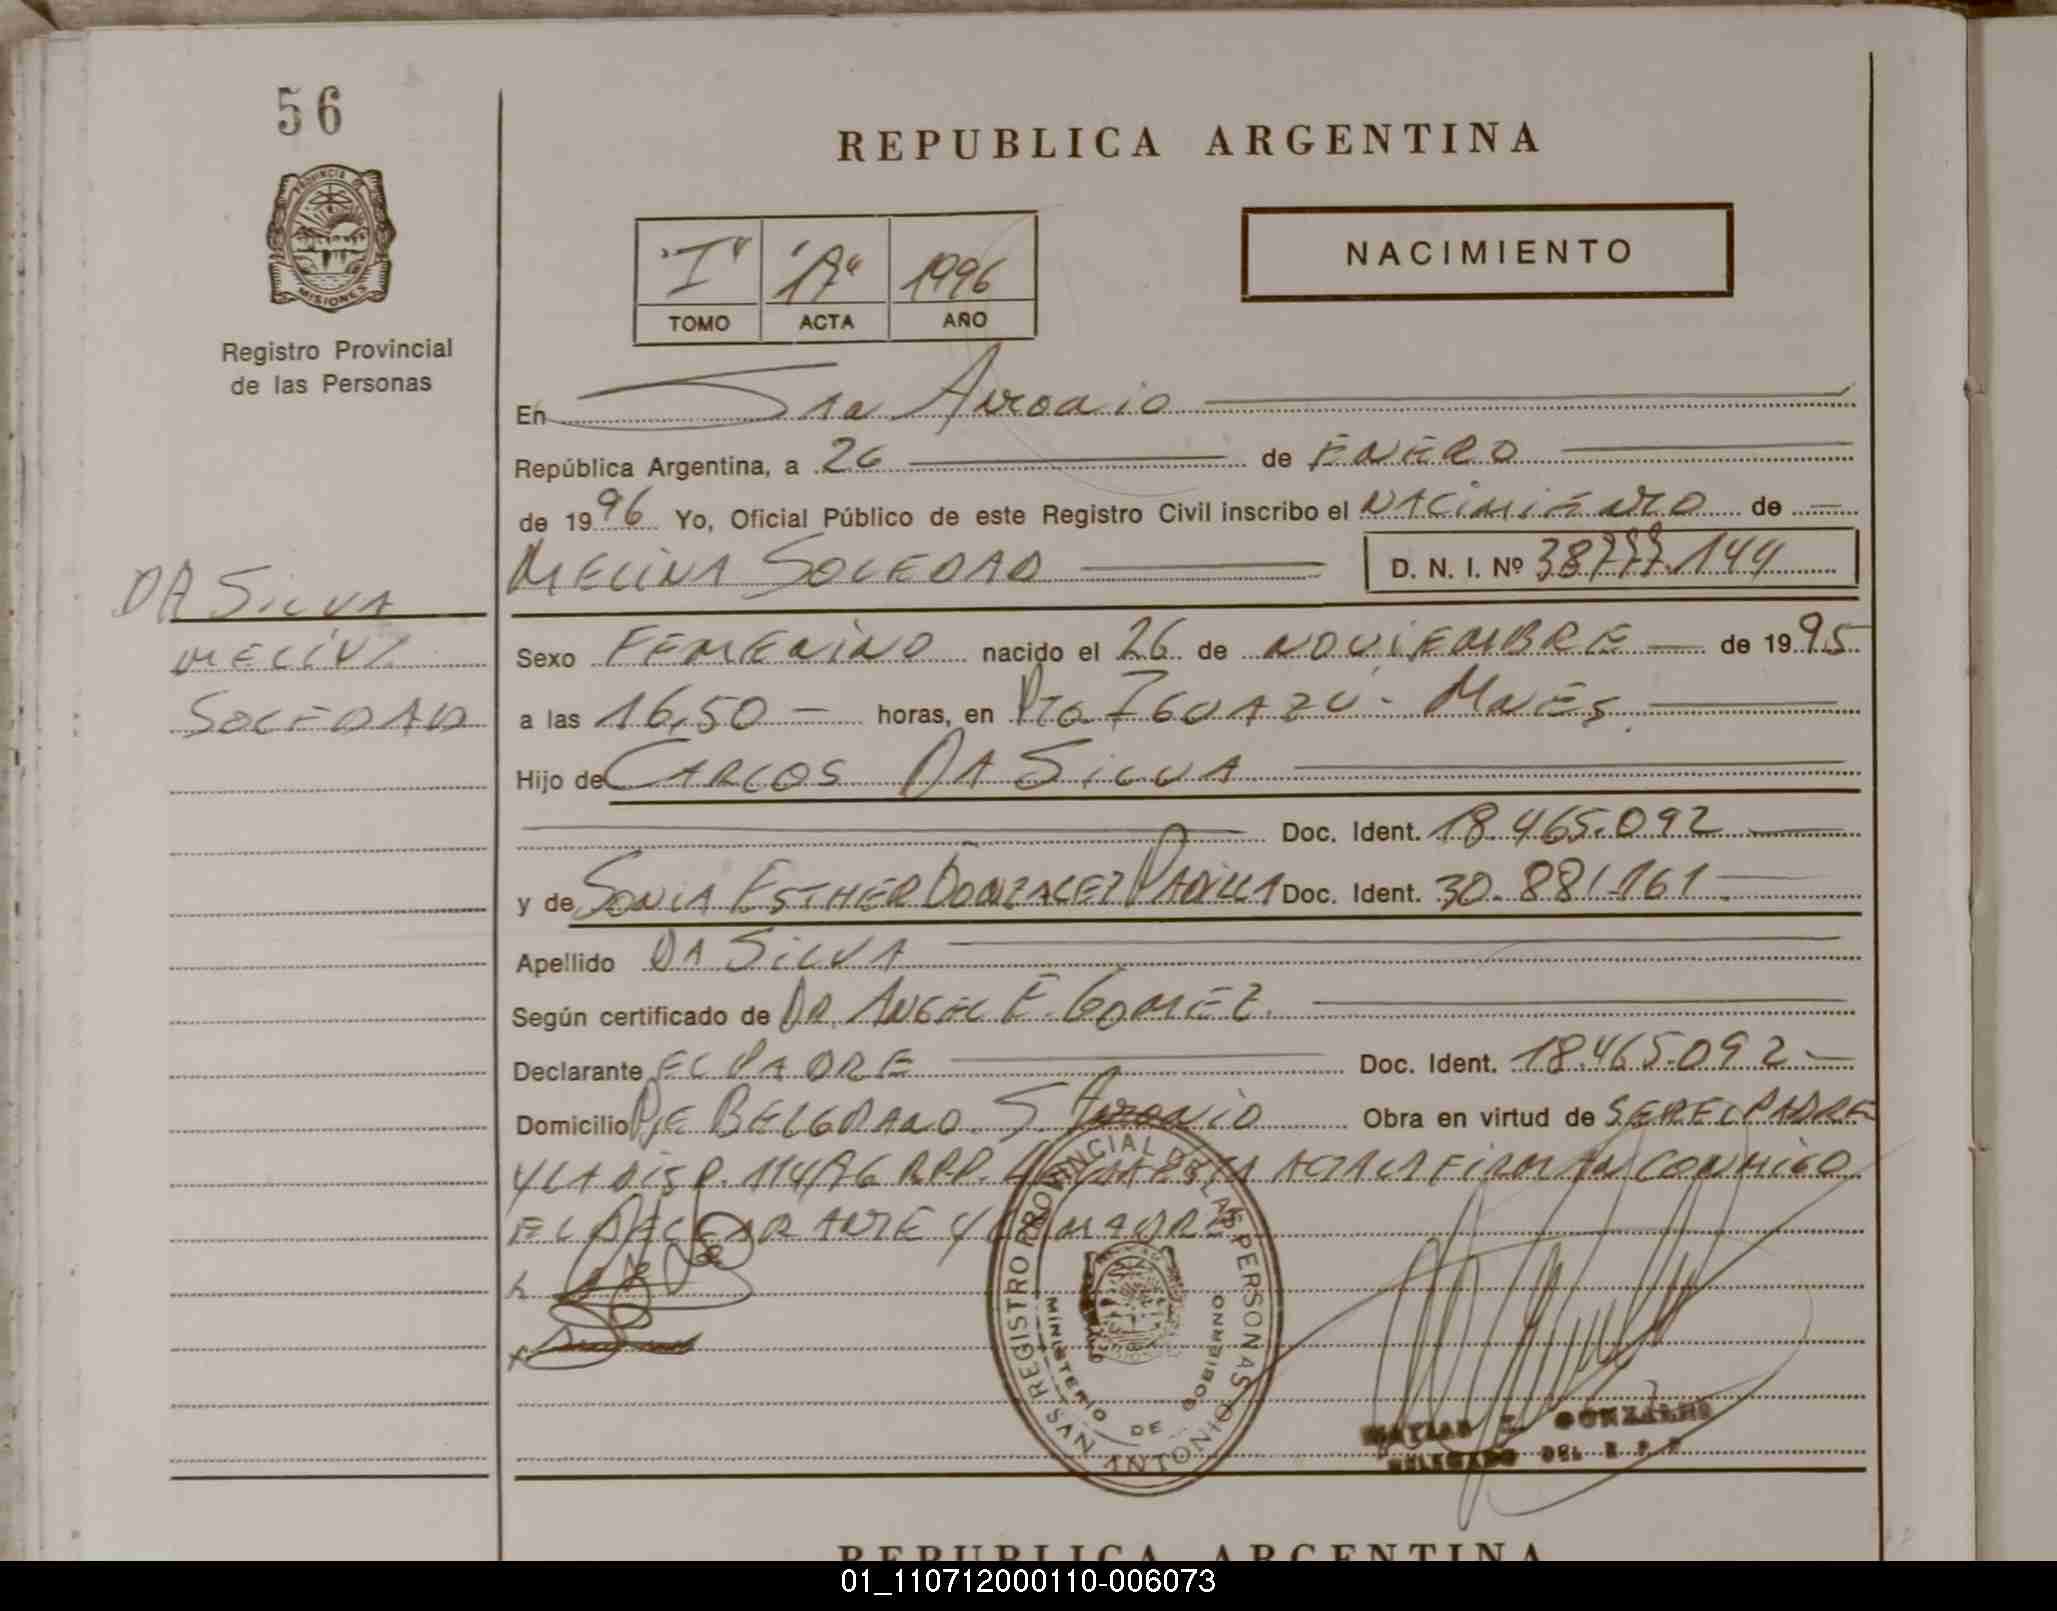 56
REPUBLICA ARGENTINA
PROVINCIA DE
MISIONES
Registro Provincial
de las Personas
"I" "A" 1996
TOMO ACTA AÑO
NACIMIENTO
En San Antonio
República Argentina, a 26 de ENERO
de 1996 Yo, Oficial Público de este Registro Civil inscribo el NACIMIENTO de
MELINA SOLEDAD D. N. I. Nº 38.777.144
DA SILVA
MELINA
SOLEDAD
Sexo FEMENINO nacido el 26 de NOVIEMBRE de 1995
a las 16,50 horas, en Pto IGUAZU - Mnes.
Hijo de CARLOS DA SILVA
Doc. Ident. 18.465.092
y de SONIA ESTHER GONZALEZ PADILLA Doc. Ident. 30.881.161
Apellido DA SILVA
Según certificado de DR. ANGEL E. GOMEZ.
Declarante EL PADRE Doc. Ident. 18.465.092
Domicilio Pje BELGRANO. S. Antonio Obra en virtud de SER EL PADRE
Y LA DISP. 114/96 R.P.P. ACTA LA FIRMAN CONMIGO
EL DECLARANTE Y LA MADRE
REGISTRO PROVINCIAL DE LAS PERSONAS
MINISTERIO DE GOBIERNO
SAN ANTONIO
GONZALEZ
DELEGADO DEL R. P. P.
REPUBLICA ARGENTINA
01_110712000110-006073